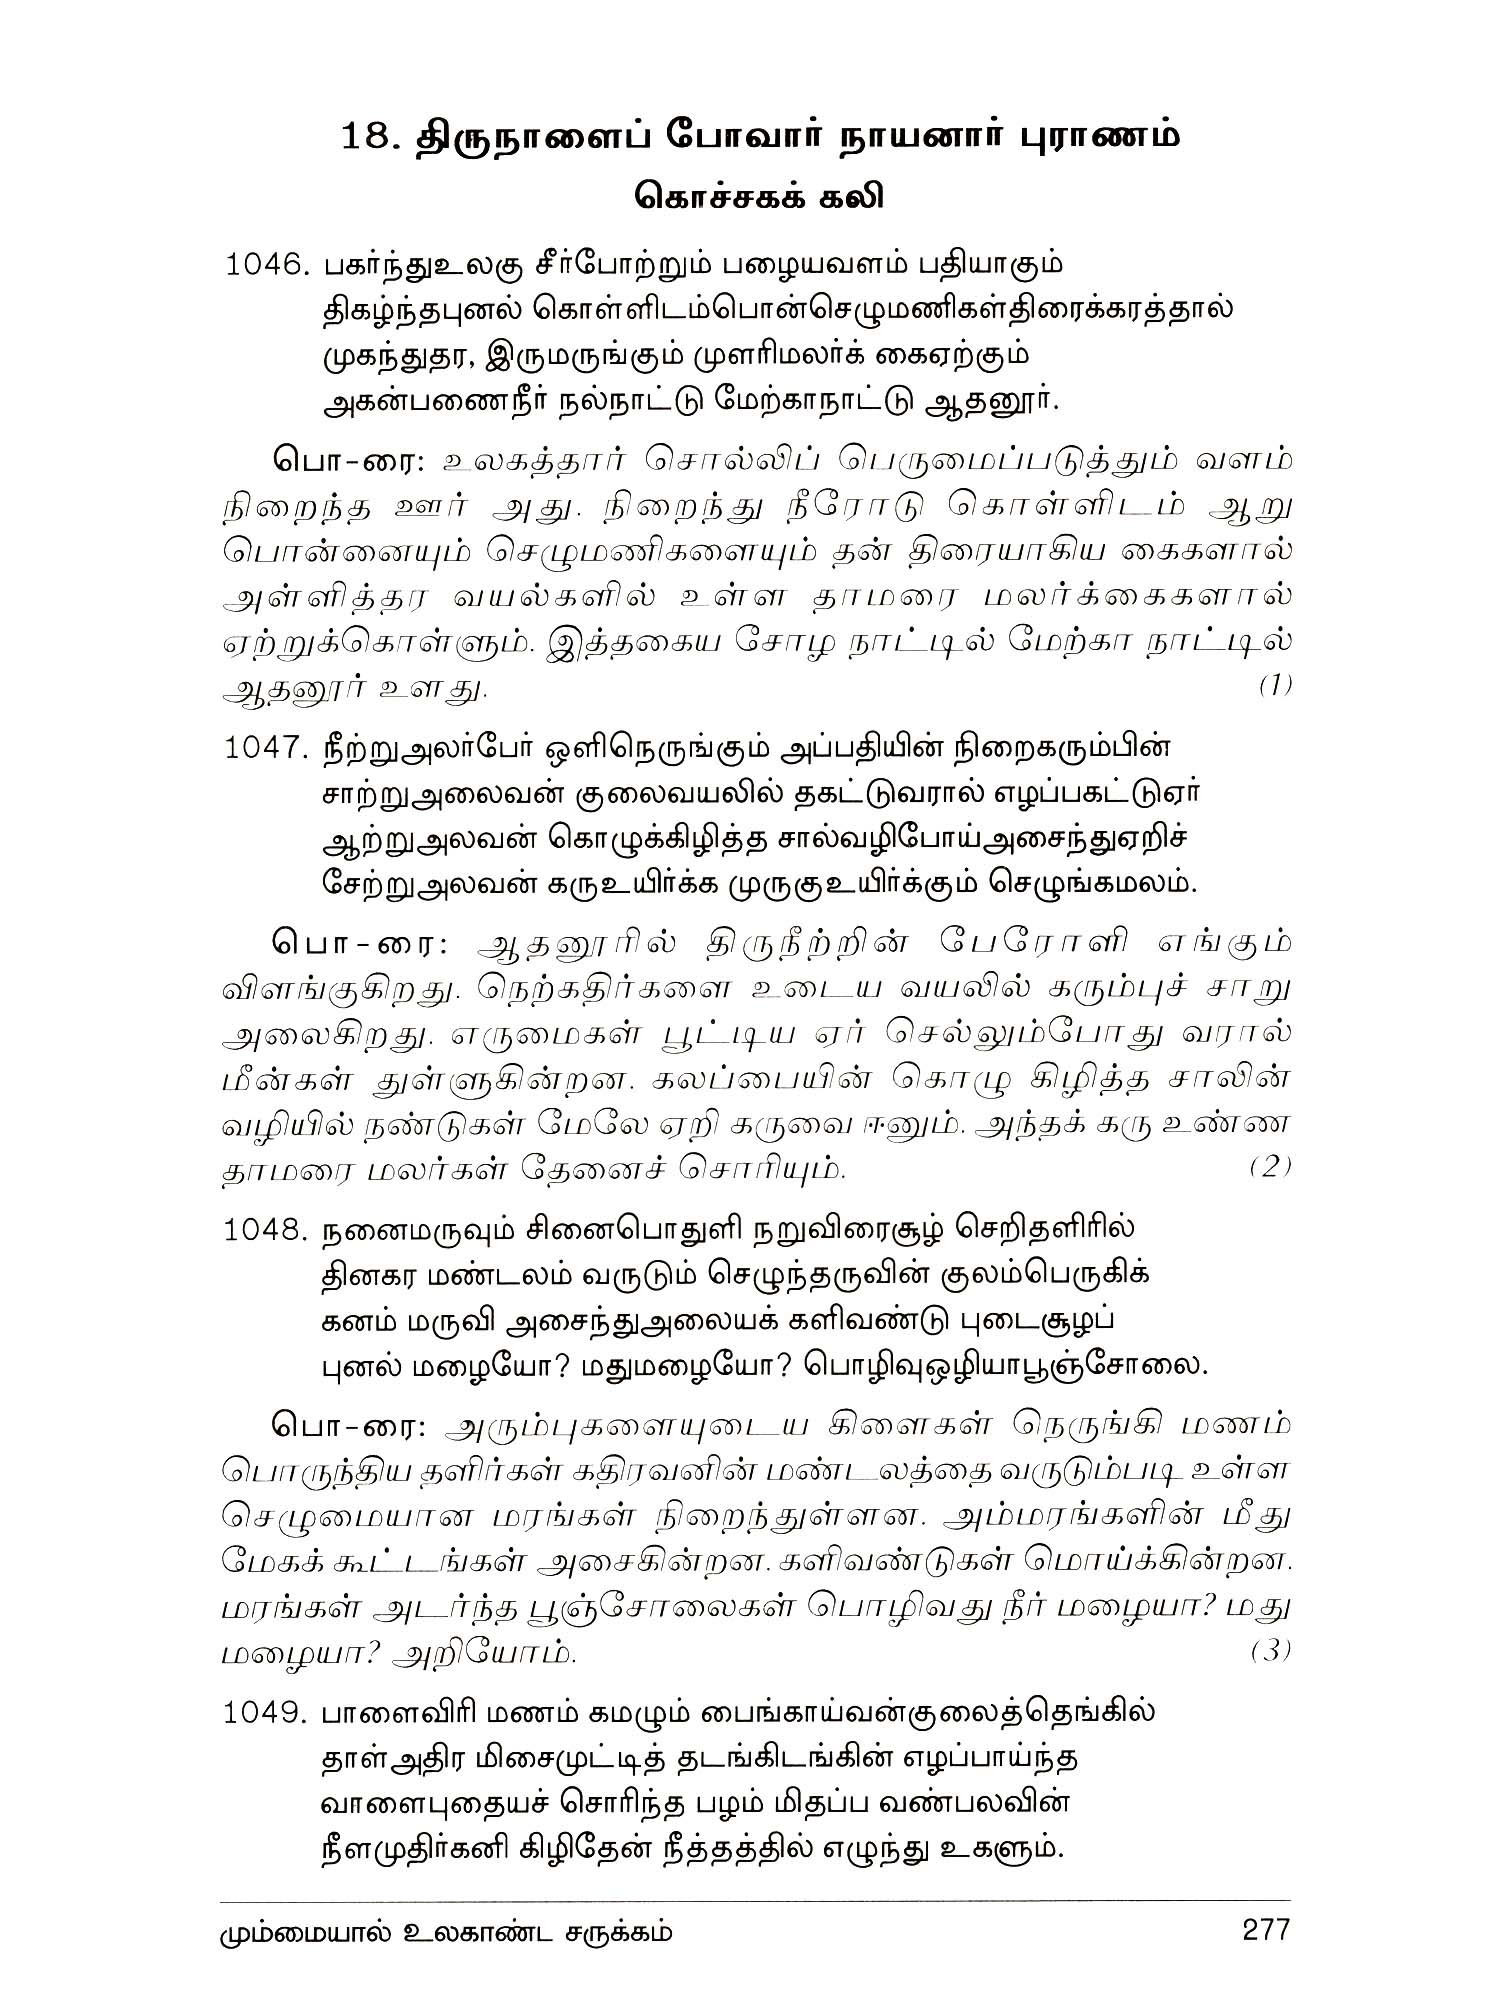 18. திருநாளைப் போவார் நாயனார் புராணம்
கொச்சகக் கலி
1046. பகர்ந்துஉலகு சீர்போற்றும் பழையவளம் பதியாகும்
திகழ்ந்தபுனல் கொள்ளிடம்பொன்செழுமணிகள்திரைக்கரத்தால்
முகந்துதர, இருமருங்கும் முளரிமலர்க் கைஏற்கும்
அகன்பணைநீர் நல்நாட்டு மேற்காநாட்டு ஆதனூர்.
பொ-ரை: உலகத்தார் சொல்லிப் பெருமைப்படுத்தும் வளம்
நிறைந்த ஊர் அது. நிறைந்து நீரோடு கொள்ளிடம் ஆறு
பொன்னையும் செழுமணிகளையும் தன் திரையாகிய கைகளால்
அள்ளித்தர வயல்களில் உள்ள தாமரை மலர்க்கைகளால்
ஏற்றுக்கொள்ளும். இத்தகைய சோழ நாட்டில் மேற்கா நாட்டில்
ஆதனூர் உளது. (1)
1047. நீற்றுஅலர்பேர் ஒளிநெருங்கும் அப்பதியின் நிறைகரும்பின்
சாற்றுஅலைவன் குலைவயலில் தகட்டுவரால் எழப்பகட்டுஏர்
ஆற்றுஅலவன் கொழுக்கிழித்த சால்வழிபோய்அசைந்துஏறிச்
சேற்றுஅலவன் கருஉயிர்க்க முருகுஉயிர்க்கும் செழுங்கமலம்.
பொ-ரை: ஆதனூரில் திருநீற்றின் பேரோளி எங்கும்
விளங்குகிறது. நெற்கதிர்களை உடைய வயலில் கரும்புச் சாறு
அலைகிறது. எருமைகள் பூட்டிய ஏர் செல்லும்போது வரால்
மீன்கள் துள்ளுகின்றன. கலப்பையின் கொழு கிழித்த சாலின்
வழியில் நண்டுகள் மேலே ஏறி கருவை ஈனும். அந்தக் கரு உண்ண
தாமரை மலர்கள் தேனைச் சொரியும். (2)
1048. நனைமருவும் சினைபொதுளி நறுவிரைசூழ் செறிதளிரில்
தினகர மண்டலம் வருடும் செழுந்தருவின் குலம்பெருகிக்
கனம் மருவி அசைந்துஅலையக் களிவண்டு புடைசூழப்
புனல் மழையோ? மதுமழையோ? பொழிவுஒழியாபூஞ்சோலை.
பொ-ரை: அரும்புகளையுடைய கிளைகள் நெருங்கி மணம்
பொருந்திய தளிர்கள் கதிரவனின் மண்டலத்தை வருடும்படி உள்ள
செழுமையான மரங்கள் நிறைந்துள்ளன. அம்மரங்களின் மீது
மேகக் கூட்டங்கள் அசைகின்றன. களிவண்டுகள் மொய்க்கின்றன.
மரங்கள் அடர்ந்த பூஞ்சோலைகள் பொழிவது நீர் மழையா? மது
மழையா? அறியோம். (3)
1049. பாளைவிரி மணம் கமழும் பைங்காய்வன்குலைத்தெங்கில்
தாள்அதிர மிசைமுட்டித் தடங்கிடங்கின் எழப்பாய்ந்த
வாளைபுதையச் சொரிந்த பழம் மிதப்ப வண்பலவின்
நீளமுதிர்கனி கிழிதேன் நீத்தத்தில் எழுந்து உகளும்.
மும்மையால் உலகாண்ட சருக்கம் 277